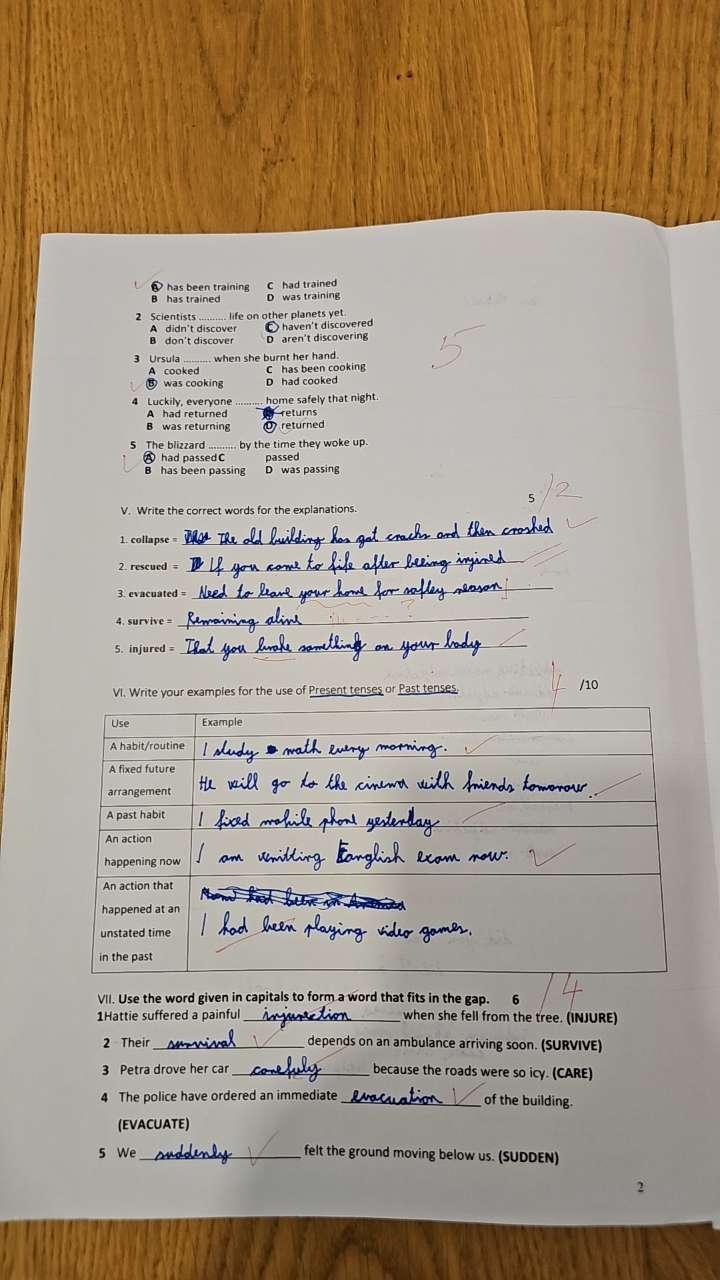 A has been training C had trained
B has trained D was training
2 Scientists .......... life on other planets yet.
A didn't discover C haven't discovered
B don't discover D aren't discovering
5
3 Ursula .......... when she burnt her hand.
A cooked C has been cooking
B was cooking D had cooked
4 Luckily, everyone .......... home safely that night.
A had returned returns
B was returning D returned
5 The blizzard .......... by the time they woke up.
A had passed C passed
B has been passing D was passing
5 /2
V. Write the correct words for the explanations.
1. collapse = The old building has got cracks and then crashed
2. rescued = If you come to life after beeing injured
3. evacuated = Need to leave your home for safley reason
4. survive = Remaining alive
5. injured = That you broke something on your body
4 /10
VI. Write your examples for the use of Present tenses or Past tenses.
Use Example
A habit/routine I study math every morning.
A fixed future arrangement He will go to the cinema with friends tomorow.
A past habit I fixed mobile phone yesterday
An action happening now I am writting English exam now.
An action that happened at an unstated time in the past I had been playing video games.
VII. Use the word given in capitals to form a word that fits in the gap. 6 /4
1Hattie suffered a painful injurection when she fell from the tree. (INJURE)
2 Their survival depends on an ambulance arriving soon. (SURVIVE)
3 Petra drove her car carefuly because the roads were so icy. (CARE)
4 The police have ordered an immediate evacuation of the building.
(EVACUATE)
5 We suddenly felt the ground moving below us. (SUDDEN)
2